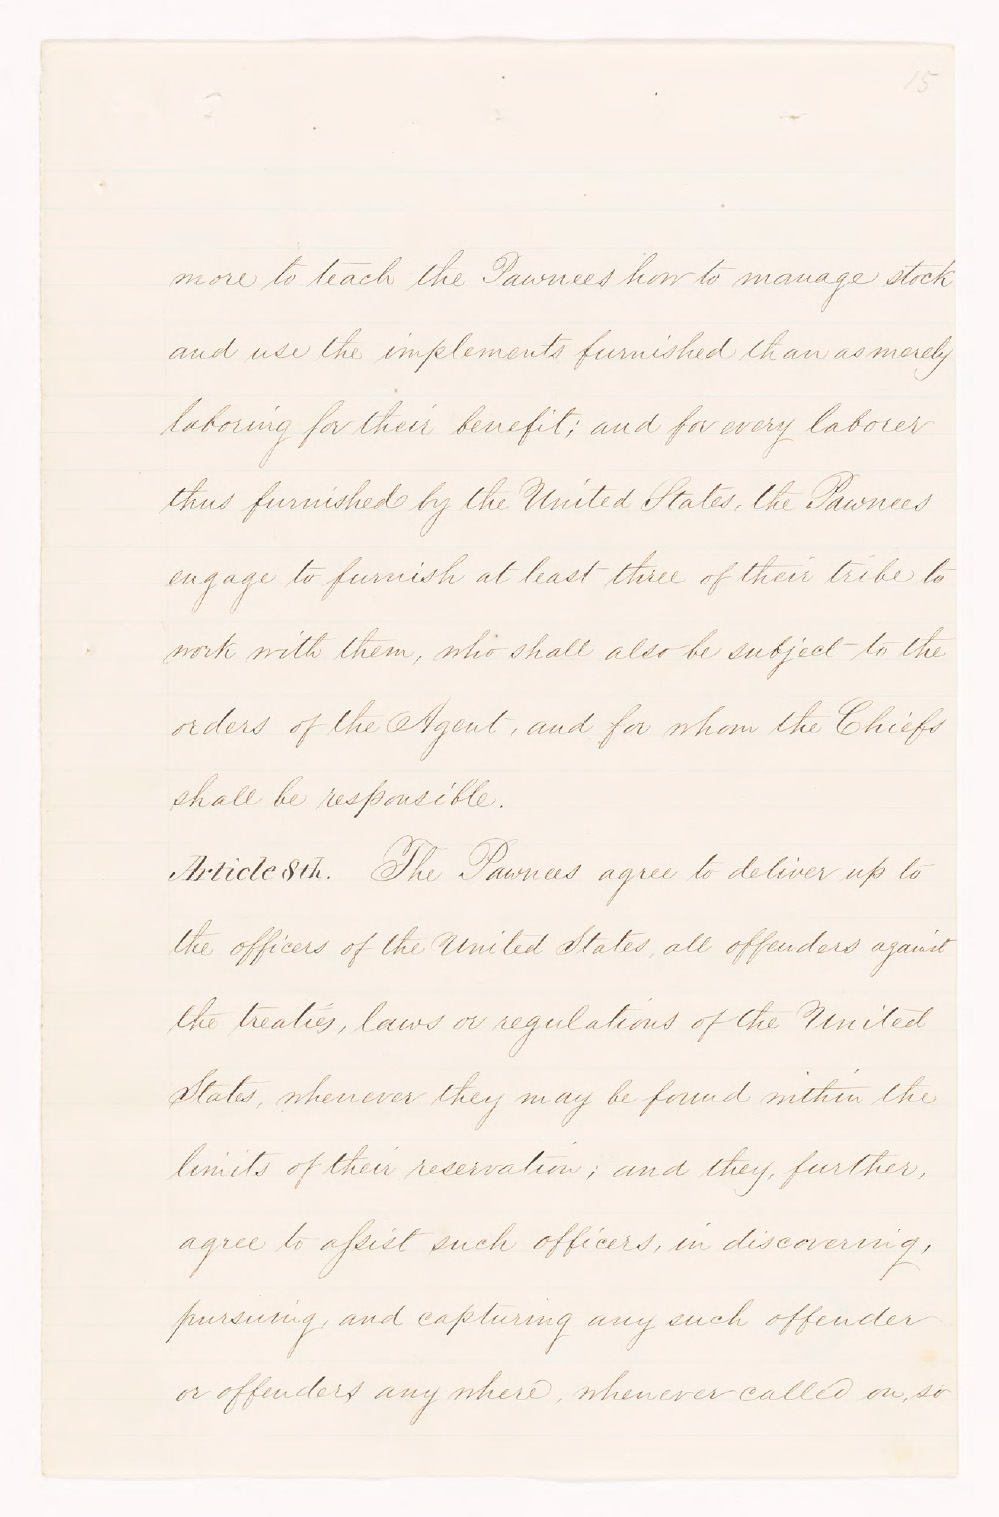 15
more to teach the Pawnees how to manage stock
and use the implements furnished than as merely
laboring for their benefit; and for every laborer
thus furnished by the United States, the Pawnees
engage to furnish at least three of their tribe to
work with them, who shall also be subject to the
orders of the Agent, and for whom the Chiefs
shall be responsible.
Article 8th. The Pawnees agree to deliver up to
the officers of the United States, all offenders against
the treaties, laws or regulations of the United
States, whenever they may be found within the
limits of their reservation; and they, further,
agree to assist such officers, in discovering,
pursuing, and capturing any such offender
or offenders any where, whenever called on, so